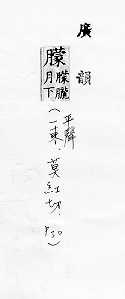 廣韻
朦
朦朧
月下
(平聲一東,莫紅切,P30)